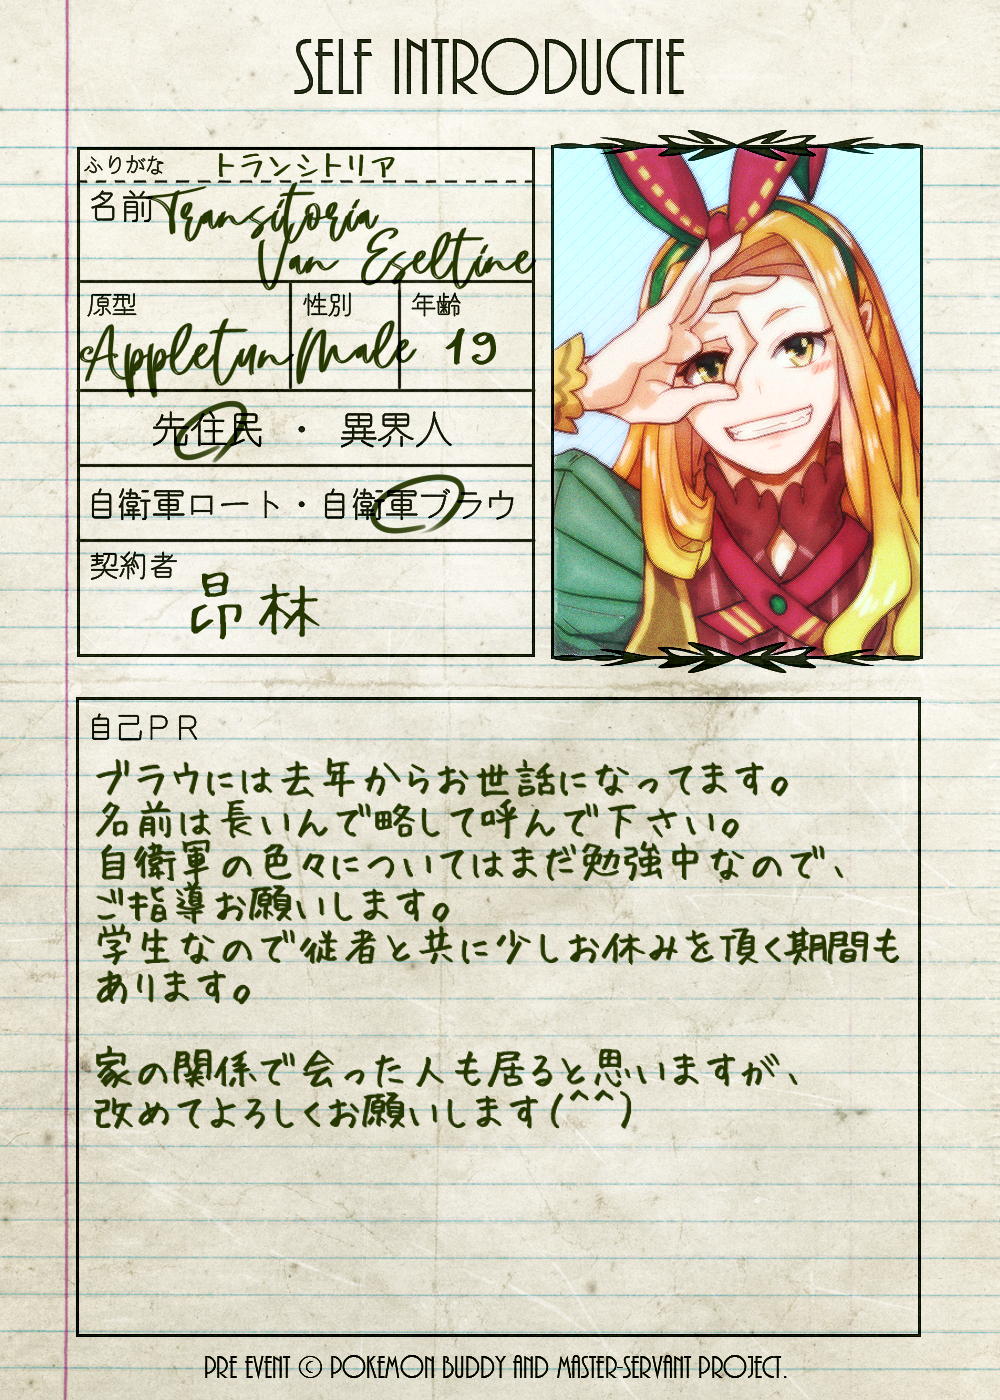 SELF INTRODUCTIE
ふりがな トランシトリア
名前 Transitoria
Van Eseltine
原型 性別 年齢
Appletun Male 19
先住民 ・ 異界人
自衛軍ロート・自衛軍ブラウ
契約者
昴 林
自己PR
ブラウには去年からお世話になってます。
名前は長いんで略して呼んで下さい。
自衛軍の色々についてはまだ勉強中なので、
ご指導お願いします。
学生なので従者と共に少しお休みを頂く期間も
あります。
家の関係で会った人も居ると思いますが、
改めてよろしくお願いします(^^)
PRE EVENT © POKEMON BUDDY AND MASTER-SERVANT PROJECT.